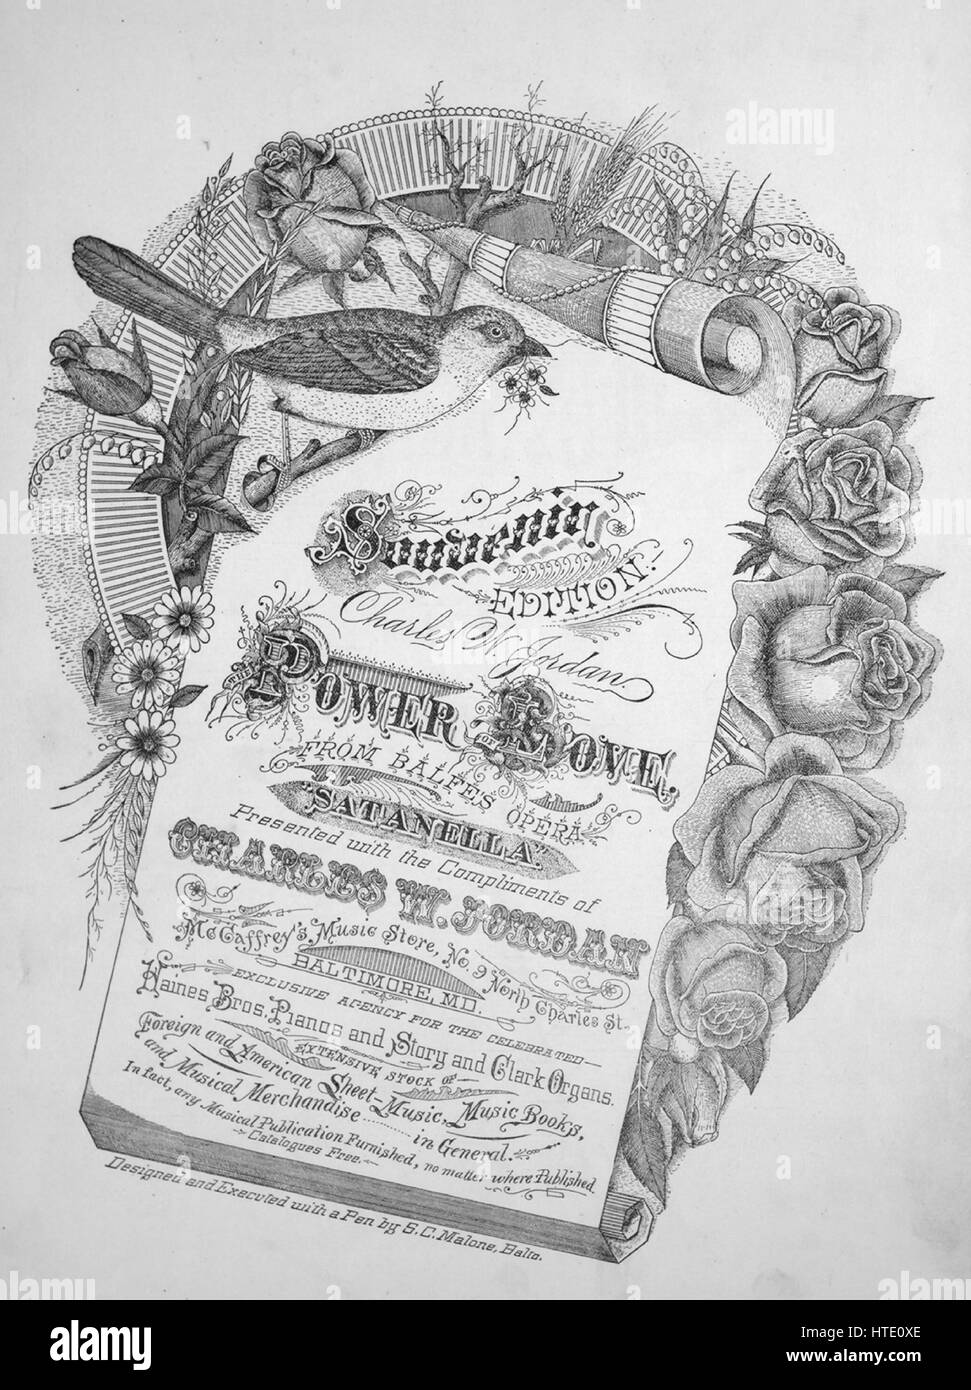 Souvenir
EDITION.
Charles W. Jordan.
THE
POWER OF LOVE,
FROM BALFE'S OPERA
"SATANELLA."
Presented with the Compliments of
CHARLES W. JORDAN
McCaffrey's Music Store, No. 9 North Charles St.
BALTIMORE, MD.
EXCLUSIVE AGENCY FOR THE CELEBRATED
Haines Bros. Pianos and Story and Clark Organs.
EXTENSIVE STOCK OF
Foreign and American Sheet-Music, Music Books,
and Musical Merchandise in General.
In fact, any Musical Publication Furnished, no matter where Published.
Catalogues Free.
Designed and Executed with a Pen by S. C. Malone, Balto.
alamy
alamy
a
a
a
a
a
alamy
Image ID: HTE0XE
www.alamy.com
alamy stock photo
HTE0XE